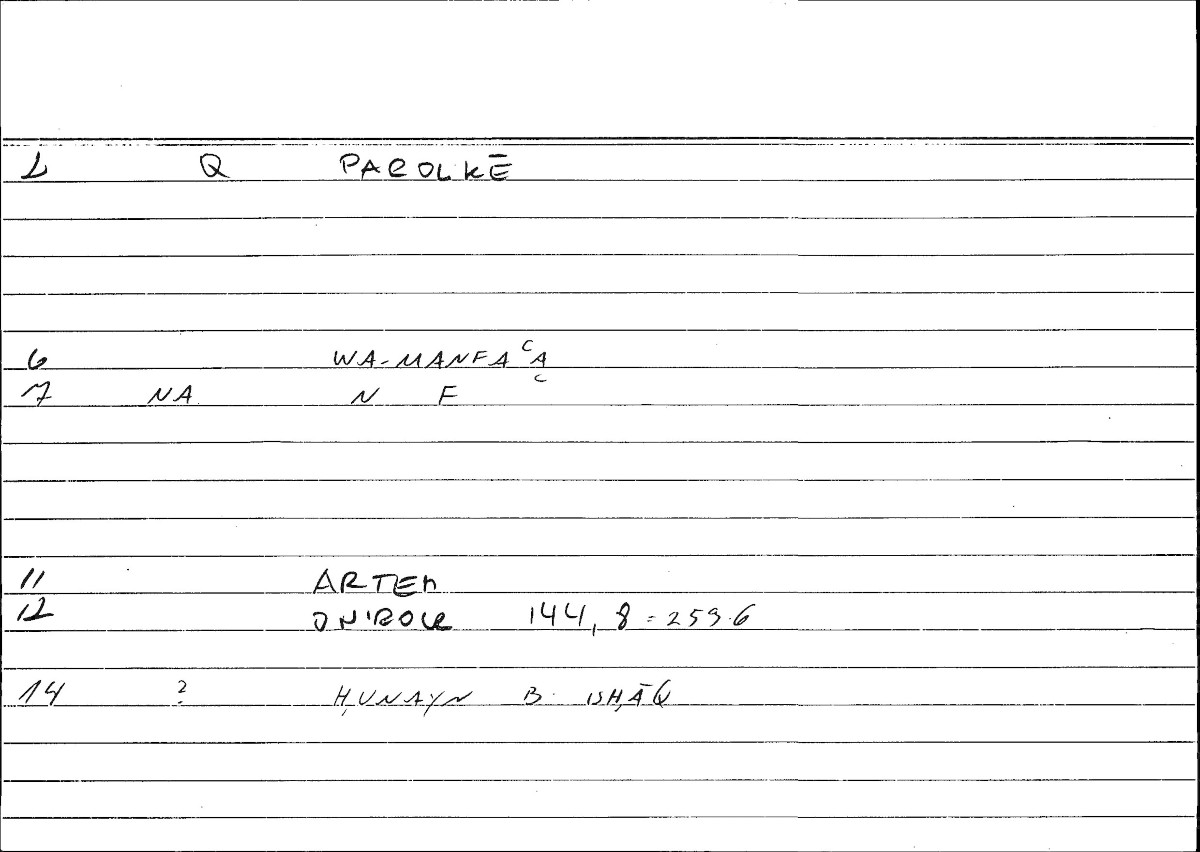 2 Q PAROLKĒ
6 WA-MANFAʿA
7 NA N F ʿ
11 ARTEM
12 ONIROCR 144, 8 = 259.6
14 ? ḤUNAYN B. ISḤĀQ